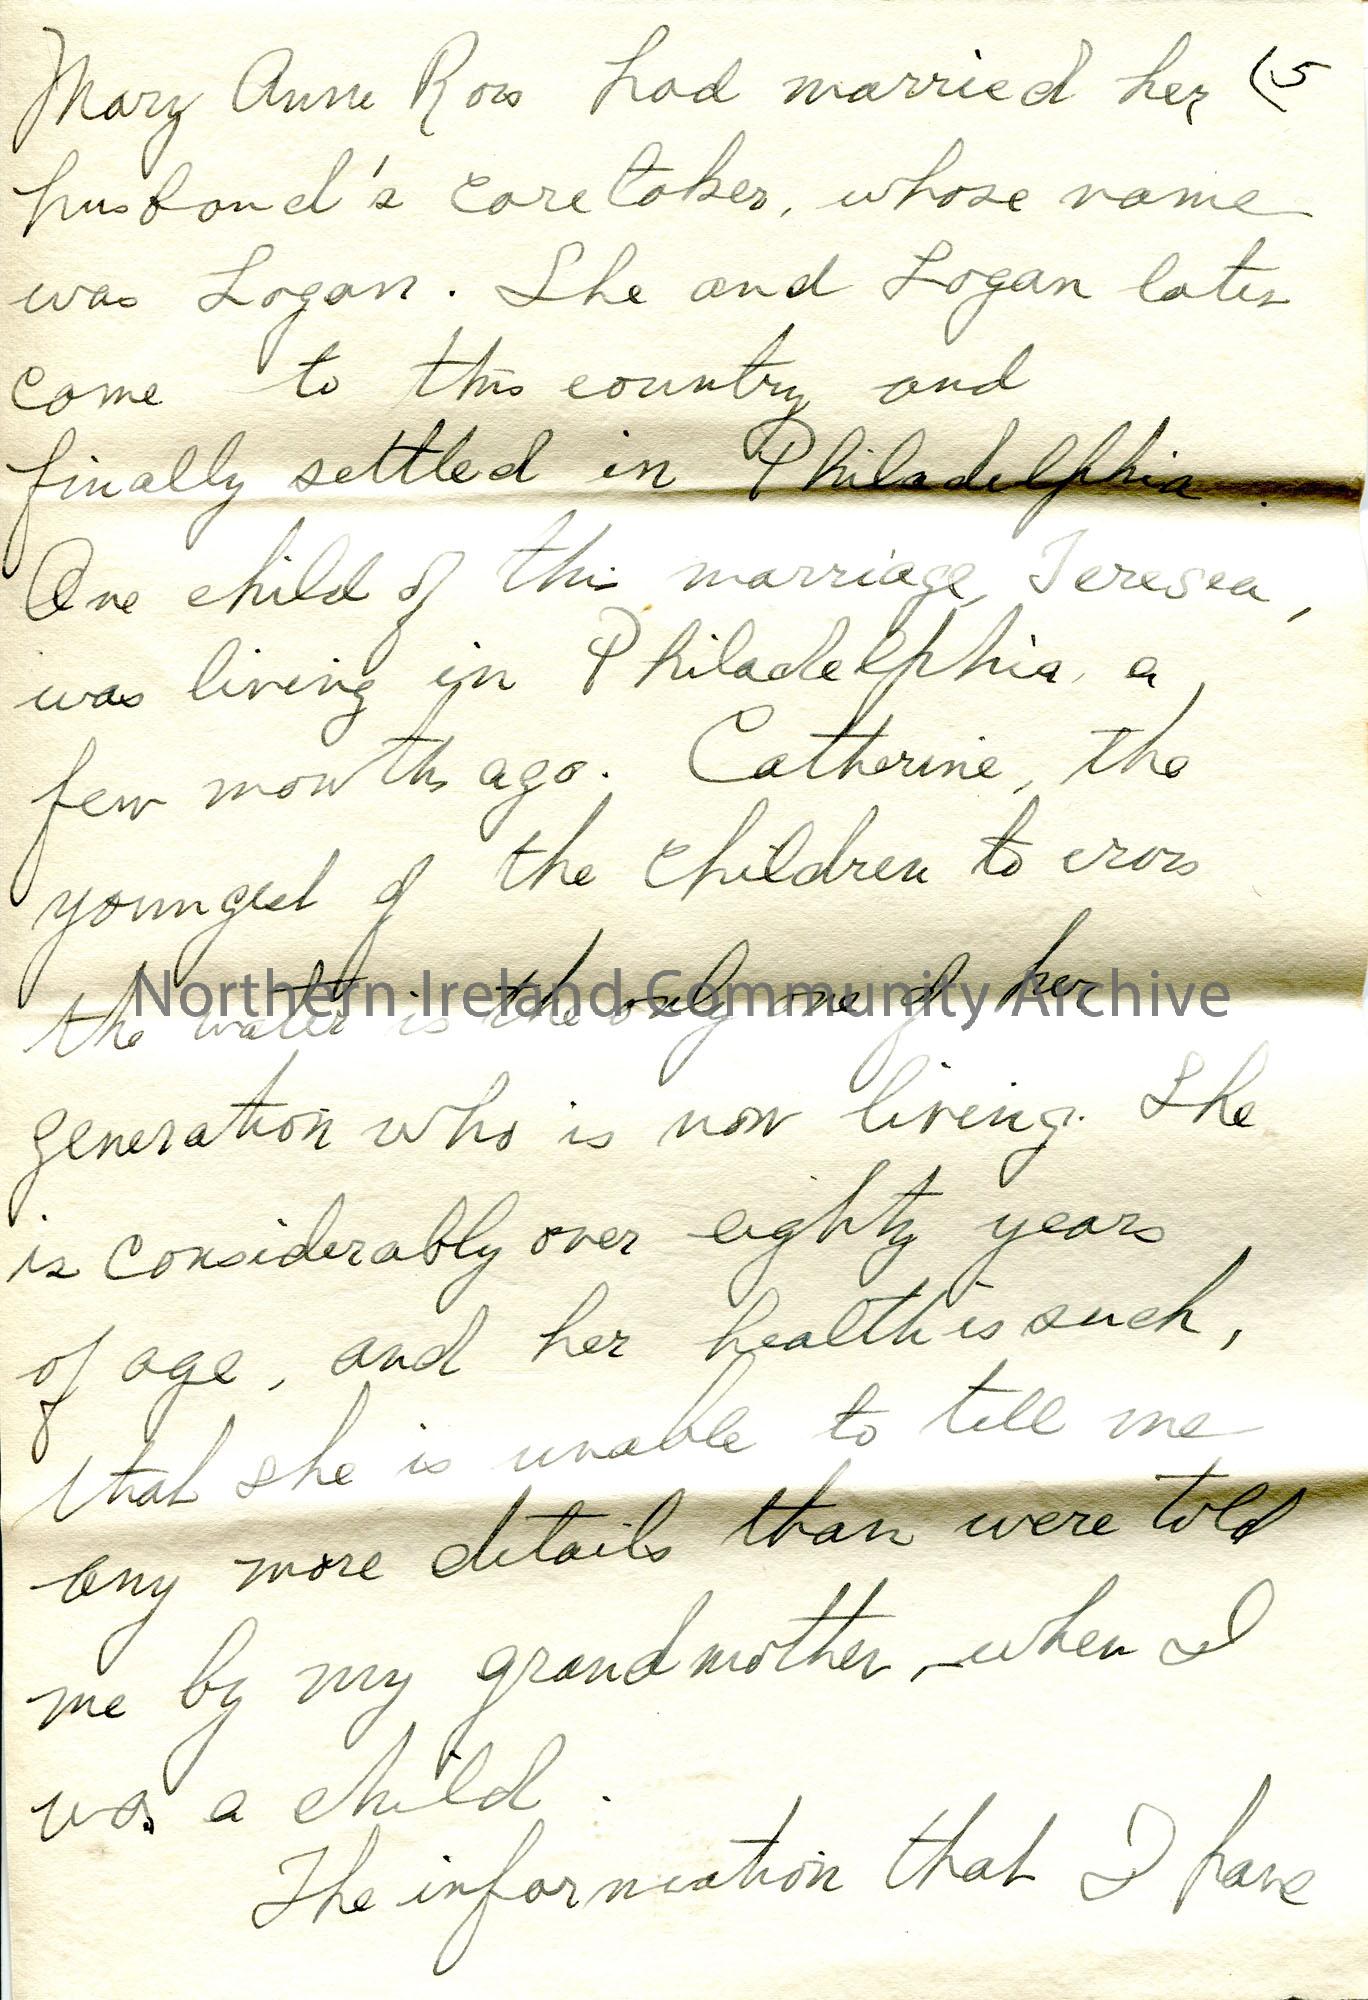 Mary Anne Ross had married her (5
husband's caretaker, whose name
was Logan. She and Logan later
came to this country and
finally settled in Philadelphia.
One child of this marriage, Teresea,
was living in Philadelphia, a
few months ago. Catherine, the
youngest of the children to cross
the water is the only one of her
Northern Ireland Community Archive
generation who is now living. She
is considerably over eighty years
of age, and her health is such,
that she is unable to tell me
any more details than were told
me by my grandmother, when I
was a child.
The information that I have